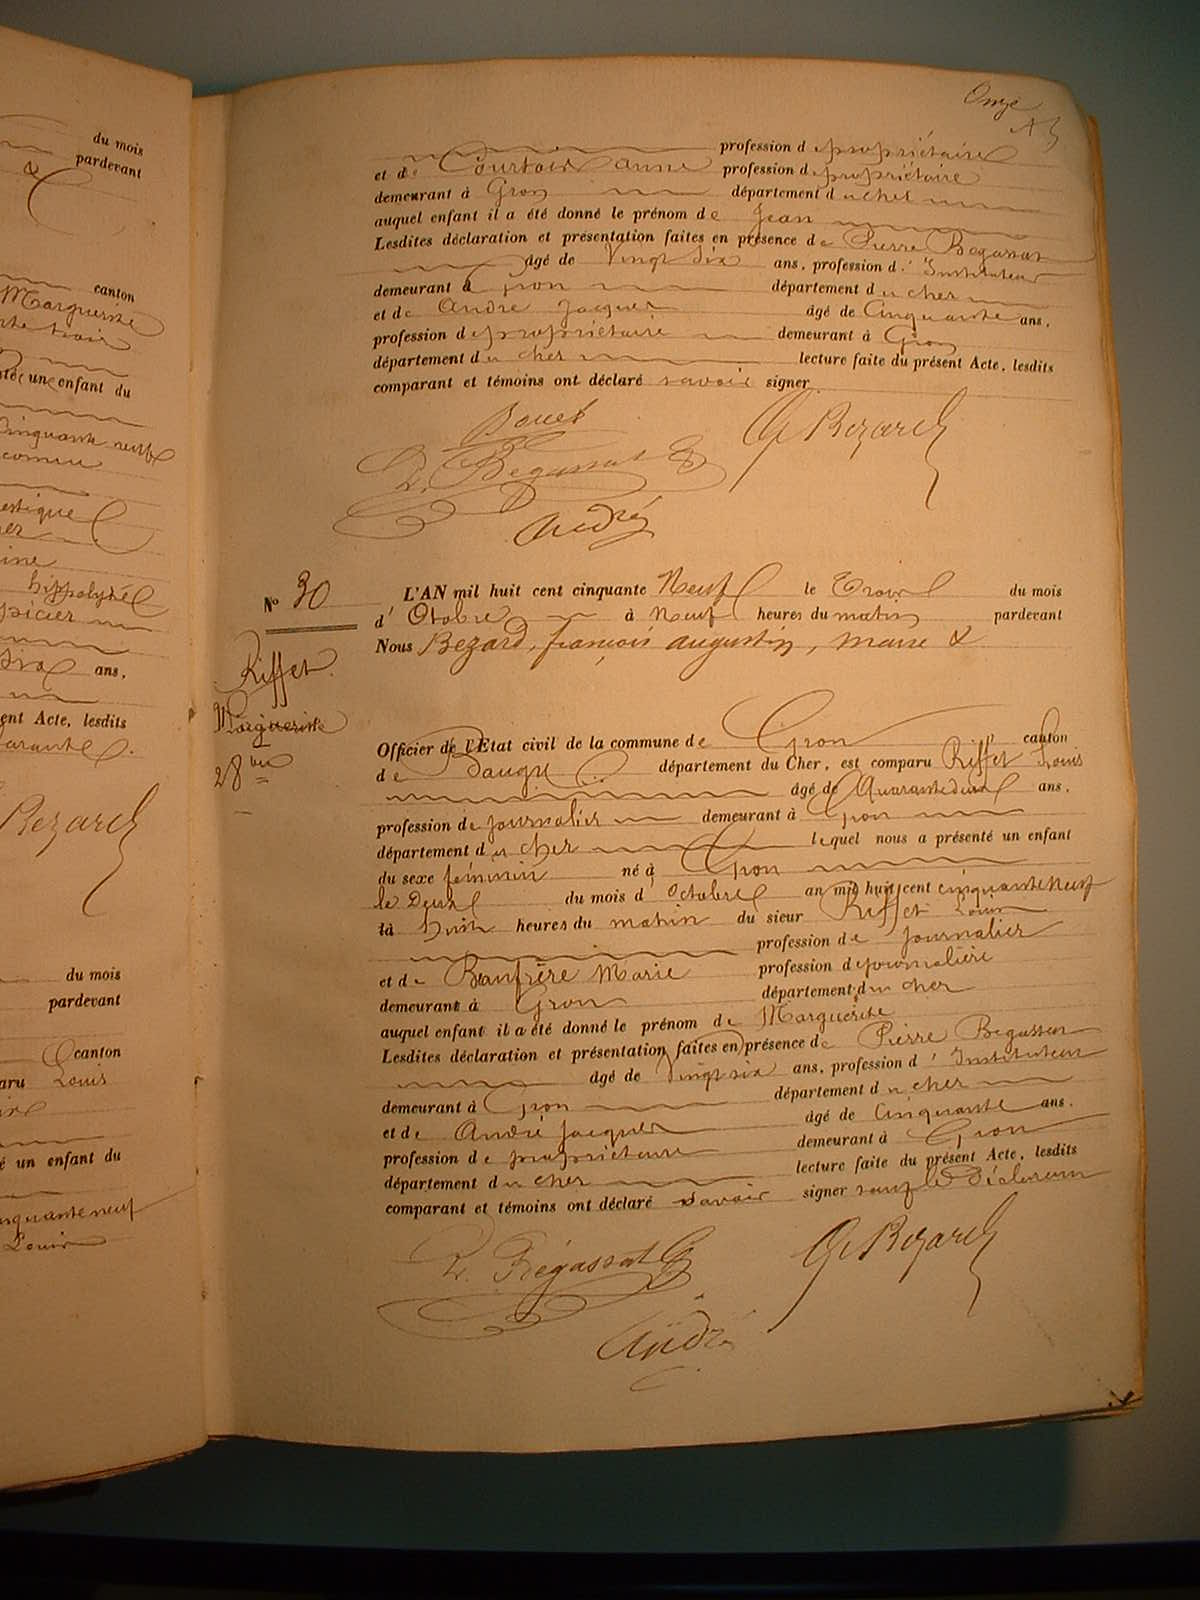 du mois
pardevant
&
canton
Marguerite
enfant du
Cinquante neuf
hippolyte
épicier
Six ans,
ent Acte, lesdits
Bezard
du mois
pardevant
canton
aru Louis
é un enfant du
nquante neuf
Louis
Onze
profession de propriétaire
et de Courtois anne profession de propriétaire
demeurant à Gron département du cher
auquel enfant il a été donné le prénom de Jean
Lesdites déclaration et présentation faites en présence de Pierre Begassat
âgé de Vingt Six ans, profession d' Instituteur
demeurant à Gron département du cher
et de André Jacques âgé de Cinquante ans,
profession de propriétaire demeurant à Gron
département du cher lecture faite du présent Acte, lesdits
comparant et témoins ont déclaré savoir signer
Bezard
P. Begassat
André
N° 30 L'AN mil huit cent cinquante Neuf le Trois du mois
d' Otobre à Neuf heures du matin pardevant
Nous Bezard, françois augustin, maire &
Riffet
Marguerite
28
Officier de l'Etat civil de la commune de Gron canton
de Baugy département du Cher, est comparu Riffet Louis
âgé de Quarante deux ans,
profession de journalier demeurant à Gron
département du cher lequel nous a présenté un enfant
du sexe féminin né à Gron
le Deux du mois d' octobre an mil huit cent cinquante neuf
à huit heures du matin du sieur Riffet Louis
profession de journalier
et de Beaufrère Marie profession de journalière
demeurant à Gron département du cher
auquel enfant il a été donné le prénom de Marguerite
Lesdites déclaration et présentation faites en présence de Pierre Begassat
âgé de Vingt six ans, profession d' Instituteur
demeurant à Gron département du cher
et de André Jacques âgé de Cinquante ans,
profession de propriétaire demeurant à Gron
département du cher lecture faite du présent Acte, lesdits
comparant et témoins ont déclaré savoir signer sauf le Déclarant
P. Bégassat Bezard
André